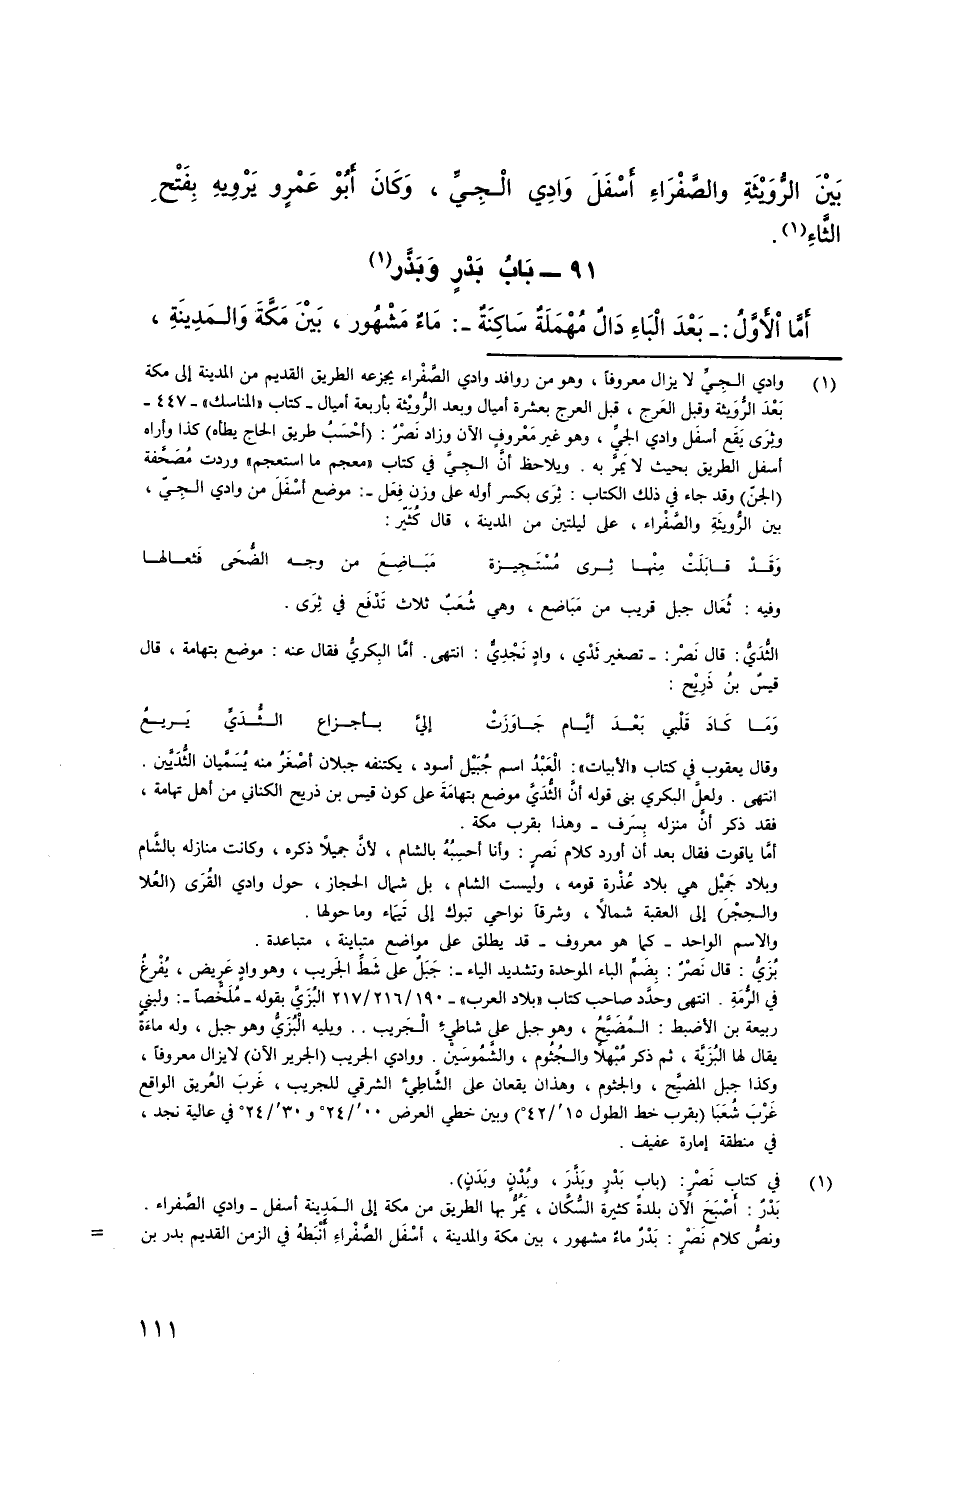 بَيْنَ الرُّوَيْثَةِ والصَّفْرَاءِ أَسْفَلَ وَادِي الْـجِيِّ ، وَكَانَ أَبُوْ عَمْرٍو يَرْوِيهِ بِفَتْحِ
الثَّاءِ(١).
٩١ ــ بَابُ بَدْرٍ وَبَذَّر(١)
أَمَّا الْأَوَّلُ :ـ بَعْدَ الْبَاءِ دَالٌ مُهْمَلَةٌ سَاكِنَةٌ ـ: مَاءٌ مَشْهُور ، بَيْنَ مَكَّةَ وَالـمَدِينَةِ ،
(١) وادي الـجِيِّ لا يزال معروفاً ، وهو من روافد وادي الصَّفْراء يجزعه الطريق القديم من المدينة إلى مكة
بَعْدَ الرُّوَيثة وقبل العَرج ، قبل العرج بعشرة أميال وبعد الرُّوَيْثة بأربعة أميال ـ كتاب «المناسك» ـ ٤٤٧ ـ
وثِرَى يَقَع أسفل وادي الجيِّ ، وهو غير مَعْروفٍ الآن وزاد نَصْرٌ : (أحْسَبُ طريق الحاج يطأه) كذا وأراه
أسفل الطريق بحيث لا يَمرُّ به . ويلاحظ أنَّ الـجيَّ في كتاب «معجم ما استعجم» وردت مُصَحَّفة
(الجنّ) وقد جاء في ذلك الكتاب : ثِرَى بكسر أوله على وزن فِعَل ـ: موضع أسْفَلَ من وادي الـجِيّ ،
بين الرُّويثَةِ والصَّفْراء ، على ليلتين من المدينة ، قال كُثَيِّر :
وَقَـدْ قـابَلَتْ مِنْهـا ثِـرى مُسْتَجيـزة مَبَـاضِـعَ من وجـه الضُّحَى فَثعـالهـا
وفيه : ثُعَال جبل قريب من مَبَاضع ، وهي شُعَبٌ ثلاث تَدْفَع في ثِرَى .
الثُّدَيُّ : قال نَصْرٌ : ـ تصغير ثَدْي ، وادٍ نَجْدِيٌّ : انتهى. أمَّا البكريُّ فقال عنه : موضع بتهامة ، قال
قيسُ بنُ ذَرِيْح :
وَمَـا كَـادَ قَلْبِي بَعْـدَ أيَّـام جَـاوَزَتْ إليَّ بـأجـزاع الثُّـدَيِّ يَـريـعُ
وقال يعقوب في كتاب «الأبيات»: الْعَبْدُ اسم جُبَيْل أسود ، يكتنفه جبلان أصْغَرُ منه يُسَمَّيان الثُّدَيَّين .
انتهى . ولعلَّ البكري بنى قوله أنَّ الثُّدَيَّ موضع بتهامَة على كون قيس بن ذريح الكناني من أهل تهامة ،
فقد ذكر أنَّ منزله بِسَرف ـ وهذا بقرب مكة .
أمَّا ياقوت فقال بعد أن أورد كلام نَصرٍ : وأنا أحسِبُهُ بالشام ، لأنَّ جميلاً ذكره ، وكانت منازله بالشَّام
وبلاد جَمِيْل هي بلاد عُذْرة قومه ، وليست الشام ، بل شمال الحجاز ، حول وادي القُرَى (العُلا
والـحِجْر) إلى العقبة شمالاً ، وشرقاً نواحي تبوك إلى تَيْماء وما حولها .
والاسم الواحد ـ كما هو معروف ـ قد يطلق على مواضع متباينة ، متباعدة .
بُزَيُّ : قال نَصْرٌ : بِضَمِّ الباء الموحدة وتشديد الياء ـ: جَبَلٌ على شَطِّ الجَريب ، وهو وادٍ عَريض ، يُفْرغُ
في الرُّمَةِ . انتهى وحدَّد صاحب كتاب «بلاد العرب» ـ ١٩٠/٢١٦/٢١٧ البُزَيَّ بقوله ـ مُلَخَّصاً ـ: ولبني
ربيعة بن الأضبط : الـمُضَيَّحُ ، وهو جبل على شاطيءِ الْـجَريب . . ويليه الْبُزَيُّ وهو جبل ، وله ماءَةٌ
يقال لها البُزَيَّة ، ثم ذكر مُبْهلاً والـجُثُوم ، والشَّمُوسَيْن . ووادي الجريب (الجرير الآن) لايزال معروفاً ،
وكذا جبل المضيَّح ، والجثوم ، وهذان يقعان على الشَّاطِئ الشرقي للجريب ، غَربَ العُريق الواقع
غَرْبَ شُعَبَا (بقرب خط الطول ١٥َ/٤٢ْ) وبين خطي العرض ٠٠َ/٢٤ْ و ٣٠َ/٢٤ْ في عالية نجد ،
في منطقة إمارة عفيف .
(١) في كتاب نَصْرٍ : (باب بَدْرٍ وبَذَّرَ ، وبُدْنٍ وبَدَنٍ).
بَدْرٌ : أَصْبَحَ الآن بلدةً كثيرةَ السُّكَّان ، يَمُرُّ بها الطريق من مكة إلى الـمَدِينة أسفل ـ وادي الصَّفراء .
ونصُّ كلام نَصْرٍ : بَدْرٌ ماءٌ مشهور ، بين مكة والمدينة ، أسْفَل الصَّفْراءِ أَنْبَطَهُ في الزمن القديم بدر بن =
١١١